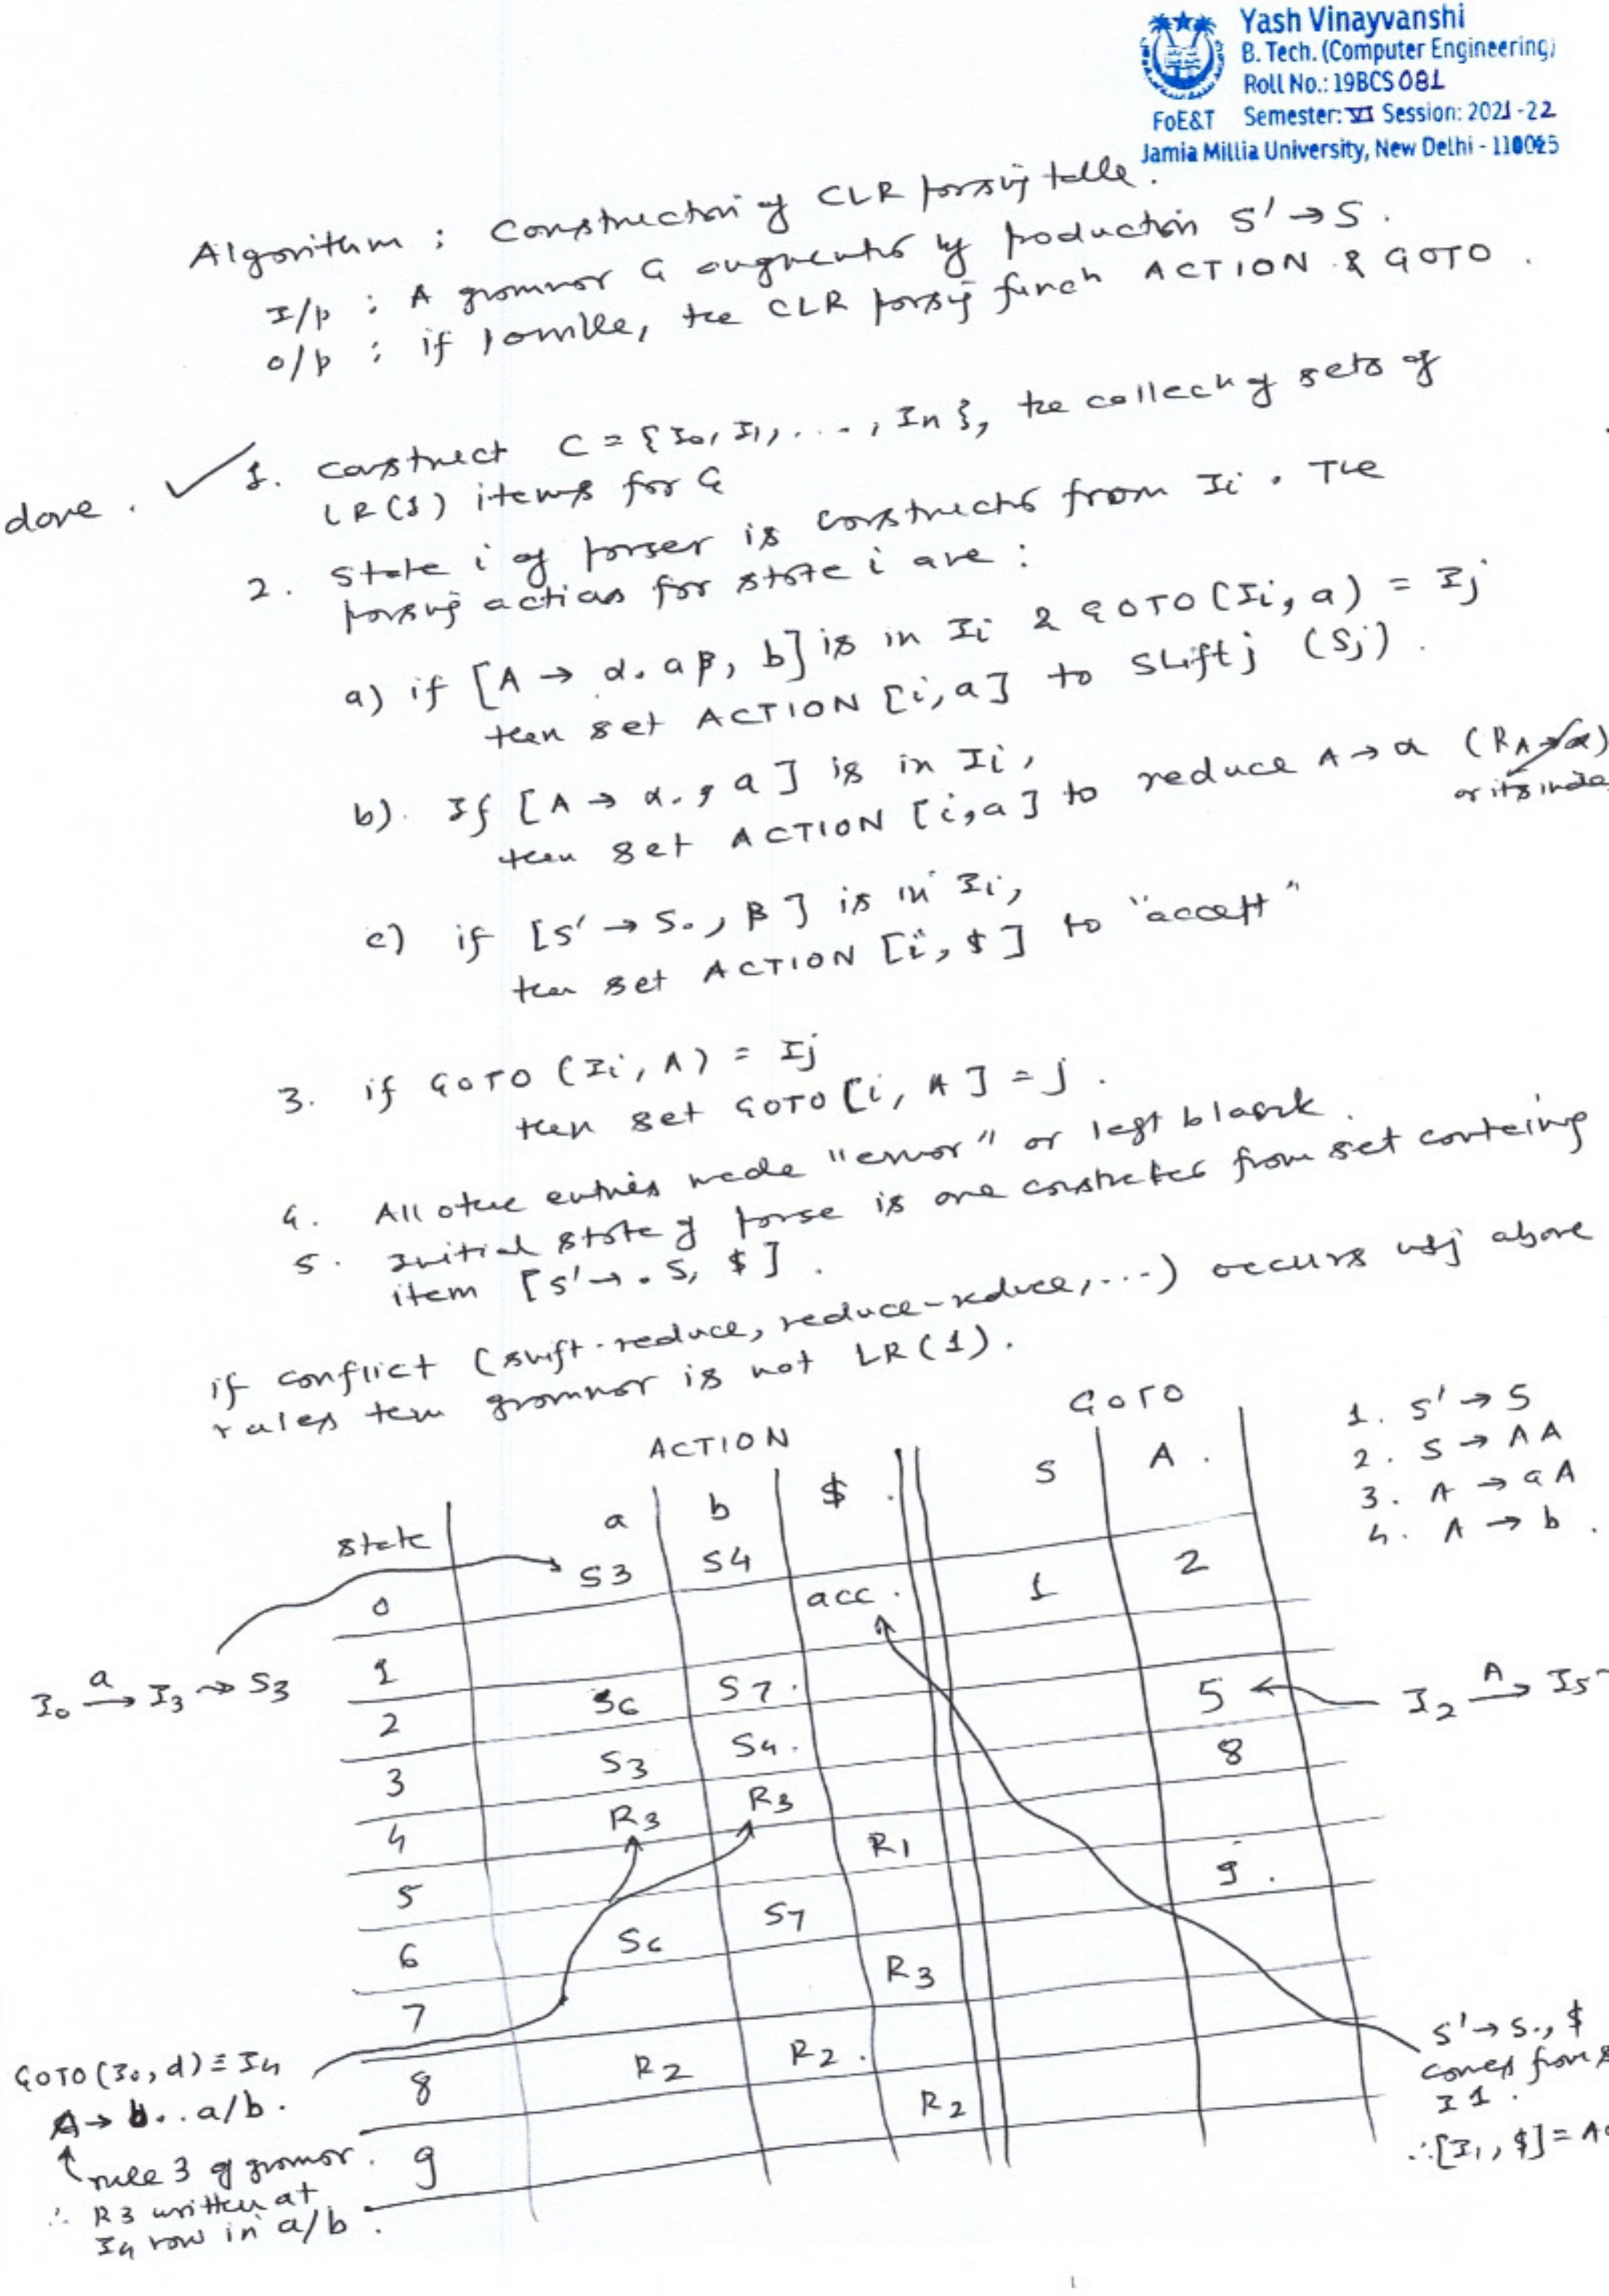 Yash Vinayvanshi
B. Tech. (Computer Engineering)
Roll No.: 19BCS081
FoE&T Semester: VI Session: 2021-22
Jamia Millia University, New Delhi - 110025
Algorithm : Construction of CLR parsing table.
I/p : A grammar G augmented by production S' → S.
o/p : if possible, the CLR parsing funcn ACTION & GOTO.
done. ✓ 1. Construct C = {I0, I1, ..., In}, the collecn of sets of
LR(1) items for G
2. State i of parser is constructed from Ii. The
parsing actions for state i are :
a) if [A → α.aβ, b] is in Ii & GOTO(Ii, a) = Ij
then set ACTION [i,a] to shift j (Sj).
b). If [A → α., a] is in Ii,
then set ACTION [i,a] to reduce A → α (RA→α)
or its
c) if [S' → S., $] is in Ii,
then set ACTION [i, $] to "accept"
3. if GOTO (Ii, A) = Ij
then set GOTO [i, A] = j.
4. All other entries made "error" or left blank.
5. Initial state of parse is one constructed from set containing
item [S' → .S, $].
if conflict (shift-reduce, reduce-reduce,...) occurs using above
rules then grammar is not LR(1).
ACTION GOTO
1. S' → S
2. S → AA
3. A → aA
4. A → b.
state a b $ S A
0 S3 S4 1 2
1 acc.
2 S6 S7 5
3 S3 S4 8
4 R3 R3
5 R1
6 S6 S7 9
7 R3
8 R2 R2
9 R2
I0 a→ I3 ⇝ S3
I2 A→ I5
GOTO(I0, d) ≡ I4
A → b., a/b.
rule 3 of grammar.
∴ R3 written at
I4 row in a/b.
S' → S., $
comes from
I1.
∴ [I1, $] =
1